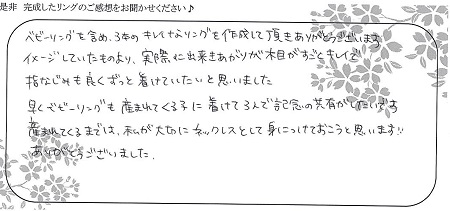 是非 完成したリングのご感想をお聞かせください♪
ベビーリングを含め、3本のキレイなリングを作成して頂きありがとうございます。
イメージしていたものより、実際に出来きあがりが木目がすごくキレイで
指なじみも良くずっと着けていたいと思いました
早くベビーリングも産まれてくる子に着けて3人で記念の共有がしたいです
産まれてくるまでは、私が大切にネックレスとして身につけておこうと思います!!
ありがとうございました.